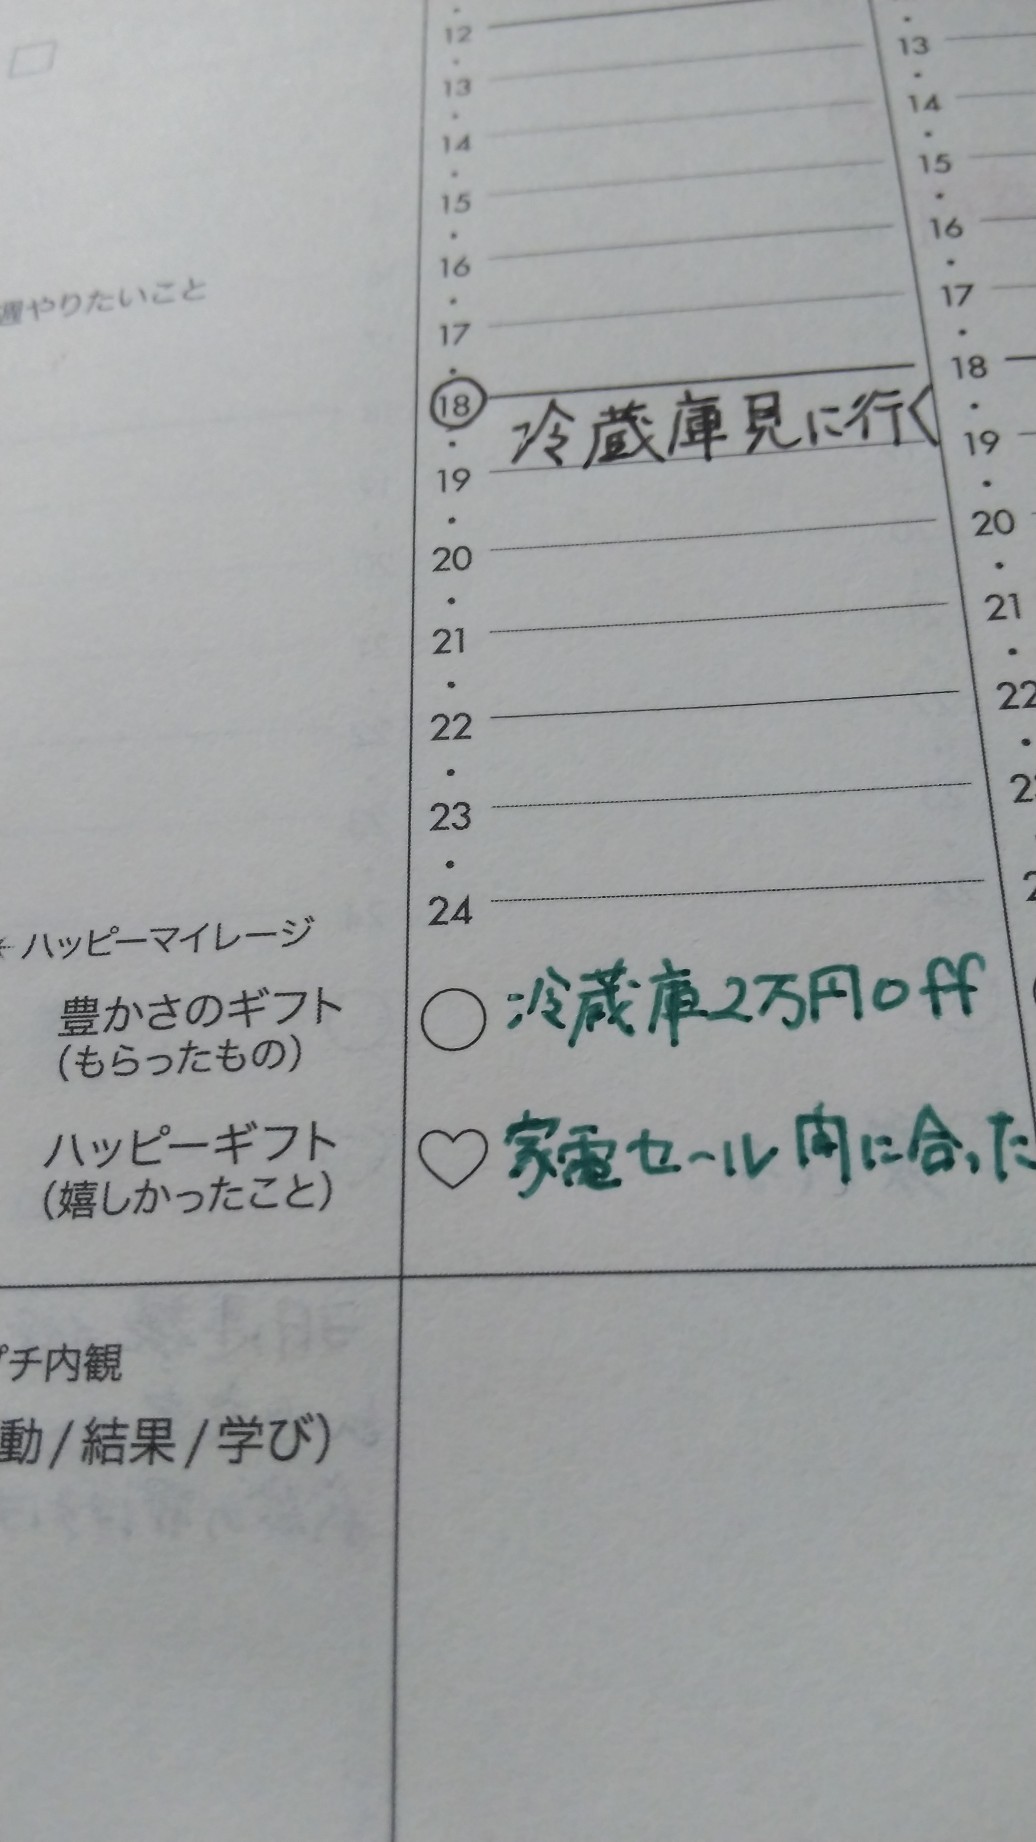 12
13
14
15
16
17
18 冷蔵庫見に行く
19
20
21
22
23
24
13
14
15
16
17
18
19
20
21
22
週やりたいこと
ハッピーマイレージ
豊かさのギフト
(もらったもの)
冷蔵庫2万円off
ハッピーギフト
(嬉しかったこと)
家電セール間に合った
プチ内観
動/結果/学び)